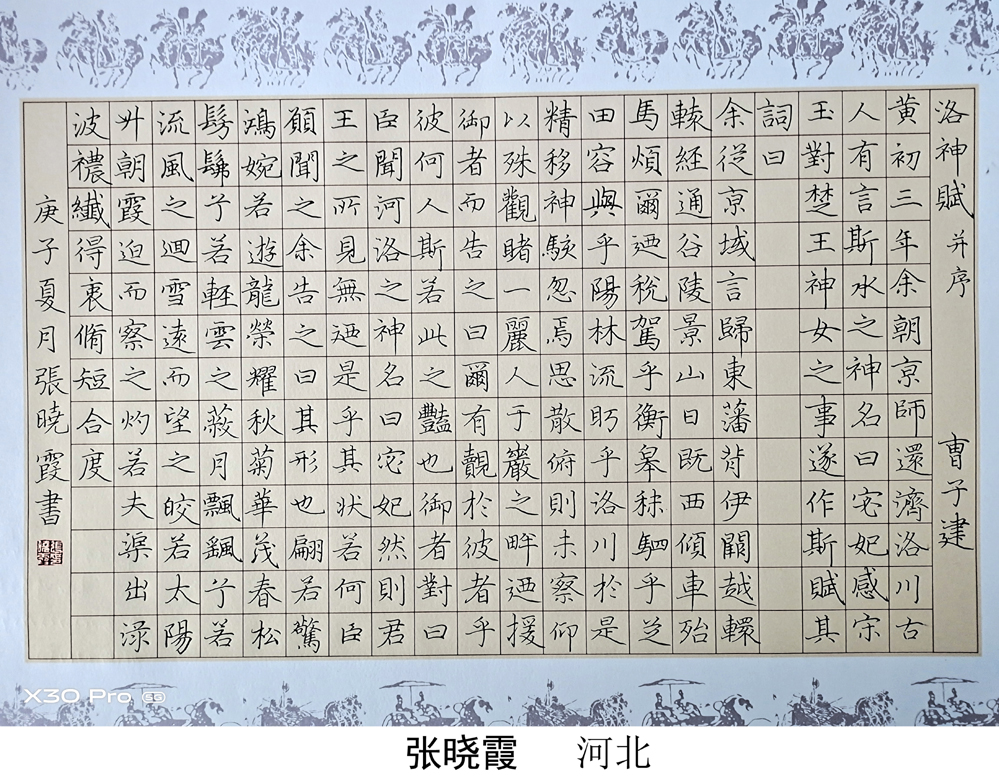 洛神賦 并序 曹子建
黄初三年余朝京師還濟洛川古
人有言斯水之神名曰宓妃感宋
玉對楚王神女之事遂作斯賦其
詞曰
余從京域言歸東藩背伊闕越轘
轅經通谷陵景山日既西傾車殆
馬煩爾迺稅駕乎衡皋秣駟乎芝
田容與乎陽林流眄乎洛川於是
精移神駭忽焉思散俯則未察仰
以殊觀睹一麗人于巖之畔迺援
御者而告之曰爾有覿於彼者乎
彼何人斯若此之豔也御者對曰
臣聞河洛之神名曰宓妃然則君
王之所見無迺是乎其狀若何臣
願聞之余告之曰其形也翩若驚
鴻婉若遊龍榮耀秋菊華茂春松
髣髴兮若輕雲之蔽月飄颻兮若
流風之迴雪遠而望之皎若太陽
升朝霞迫而察之灼若夫渠出淥
波襛纖得衷脩短合度
庚子夏月張曉霞書
X30 Pro 5G
张晓霞 河北